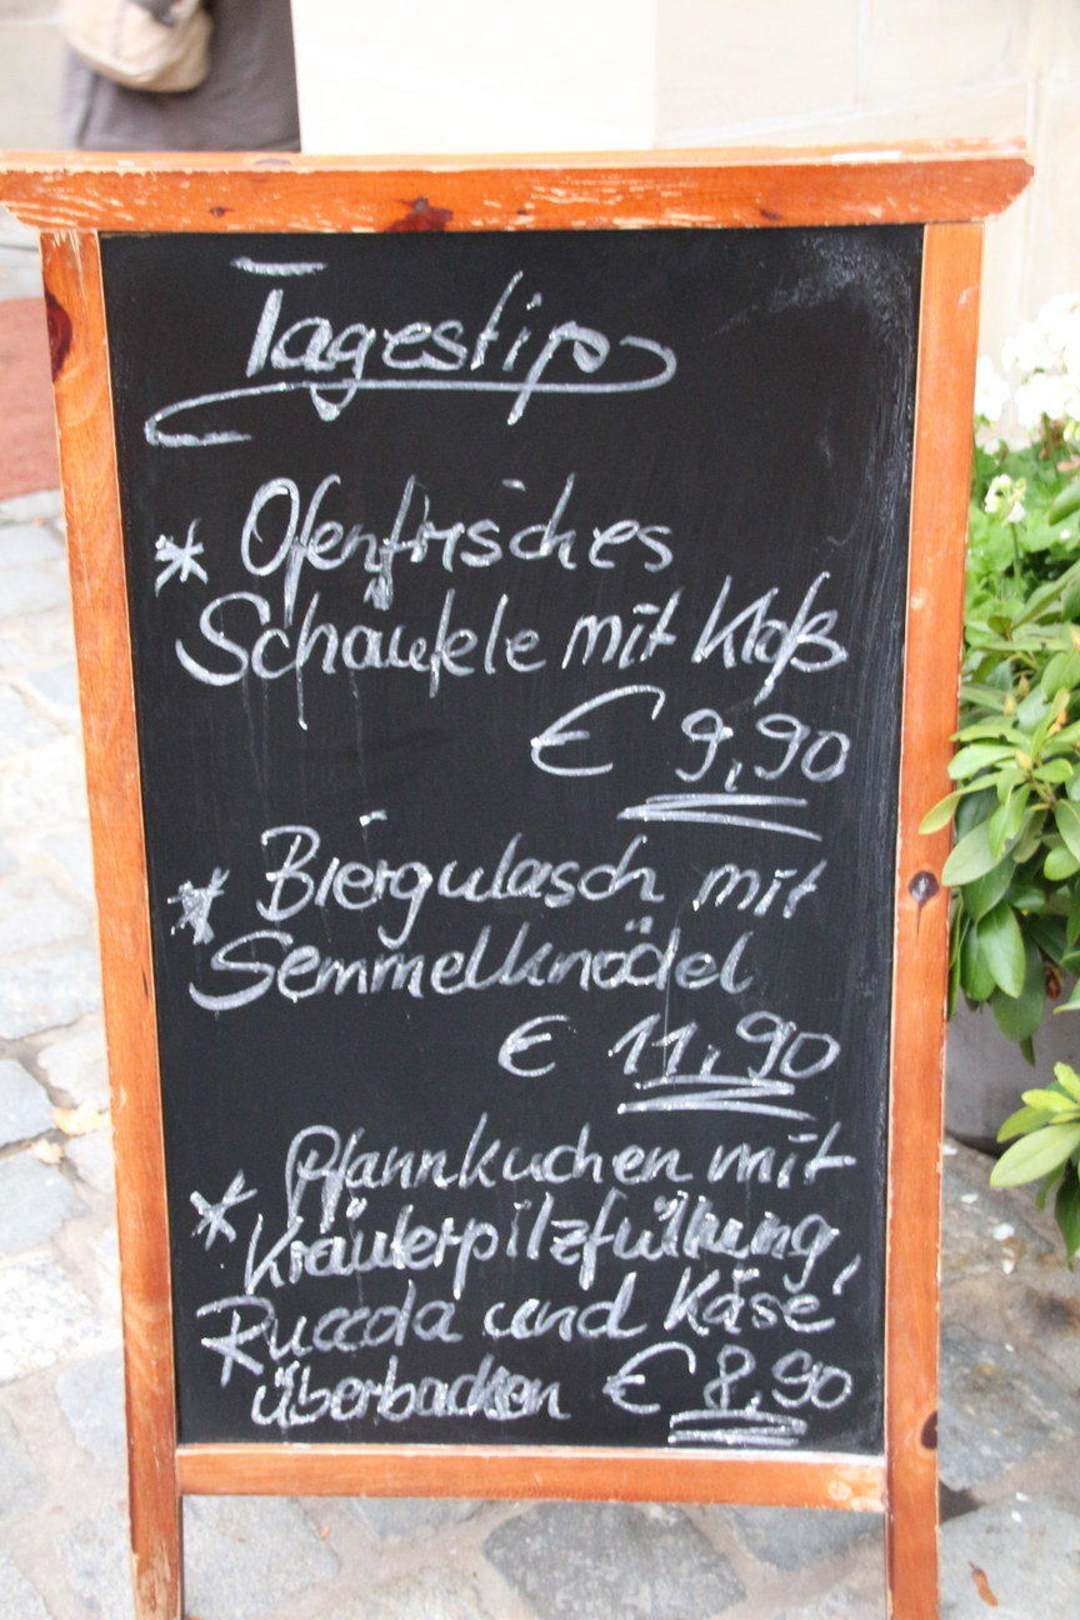 Tagestips
* Ofenfrisches
Schäufele mit Kloß
€ 9,90
* Biergulasch mit
Semmelknödel
€ 11,90
* Pfannkuchen mit
Kräuterpilzfüllung,
Ruccola und Käse
überbacken € 8,90